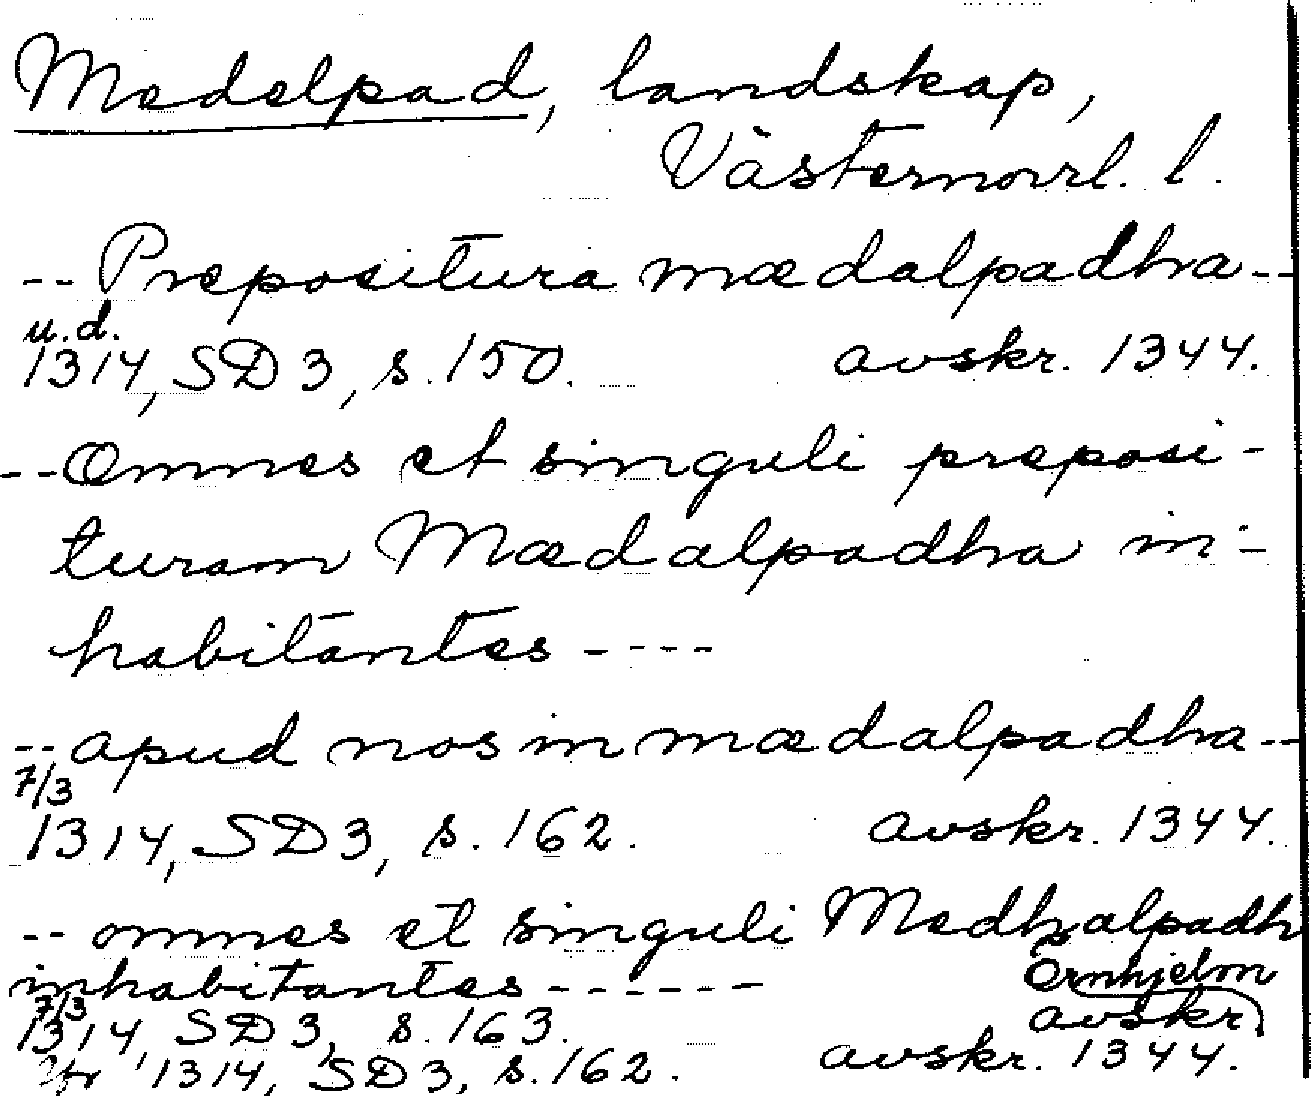 Medelpad, landskap,
Västernorrl. l.
-- Prepositura mædalpadha --
u.d.
1314, SD 3, s. 150. avskr. 1344.
-- Omnes et singuli preposi-
turam Mædalpadha in-
habitantes ----
-- apud nos in mædalpadha --
7/3
1314, SD 3, s. 162. avskr. 1344.
-- omnes et singuli Medhalpadh
inhabitantes ------ Örnhjelm
7/3 avskr.
1314, SD 3, s. 163.
1314, SD 3, s. 162. avskr. 1344.